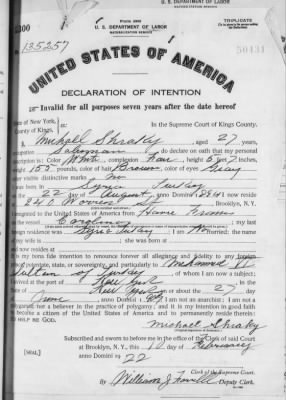 U. S. DEPARTMENT OF LABOR
NATURALIZATION SERVICE
U. S. DEPARTMENT OF LABOR
NATURALIZATION SERVICE
TRIPLICATE
No. 135257
50431
UNITED STATES OF AMERICA
DECLARATION OF INTENTION
Invalid for all purposes seven years after the date hereof
State of New York,
County of Kings,
In the Supreme Court of Kings County.
I, Michael Shraky, aged 27 years,
occupation Salesman, do declare on oath that my personal
description is: Color White, complexion Fair, height 5 feet 7 inches,
weight 155 pounds, color of hair Brown, color of eyes Gray
other visible distinctive marks
I was born in Syria Turkey
on the 22 day of August, anno Domini 1894; I now reside
at 240 Brooklyn, N. Y.
I emigrated to the United States of America from Havre France
on the vessel Carolina; my last
foreign residence was Turkey; I am married; the name
of my wife is; she was born at
and now resides at
It is my bona fide intention to renounce forever all allegiance and fidelity to any foreign
prince, potentate, state, or sovereignty, and particularly to Mohamed VI
Sultan of Turkey, of whom I am now a subject;
I arrived at the port of New York
on or about the 27 day
of June, anno Domini; I am not an anarchist; I am not a
polygamist nor a believer in the practice of polygamy; and it is my intention in good faith
to become a citizen of the United States of America and to permanently reside therein:
SO HELP ME GOD.
Michael Shraky
Subscribed and sworn to before me in the office of the Clerk of said Court
at Brooklyn, N. Y., this 10 day of February
anno Domini 1922
[SEAL]
Clerk of the Supreme Court.
By William J. Deputy Clerk.